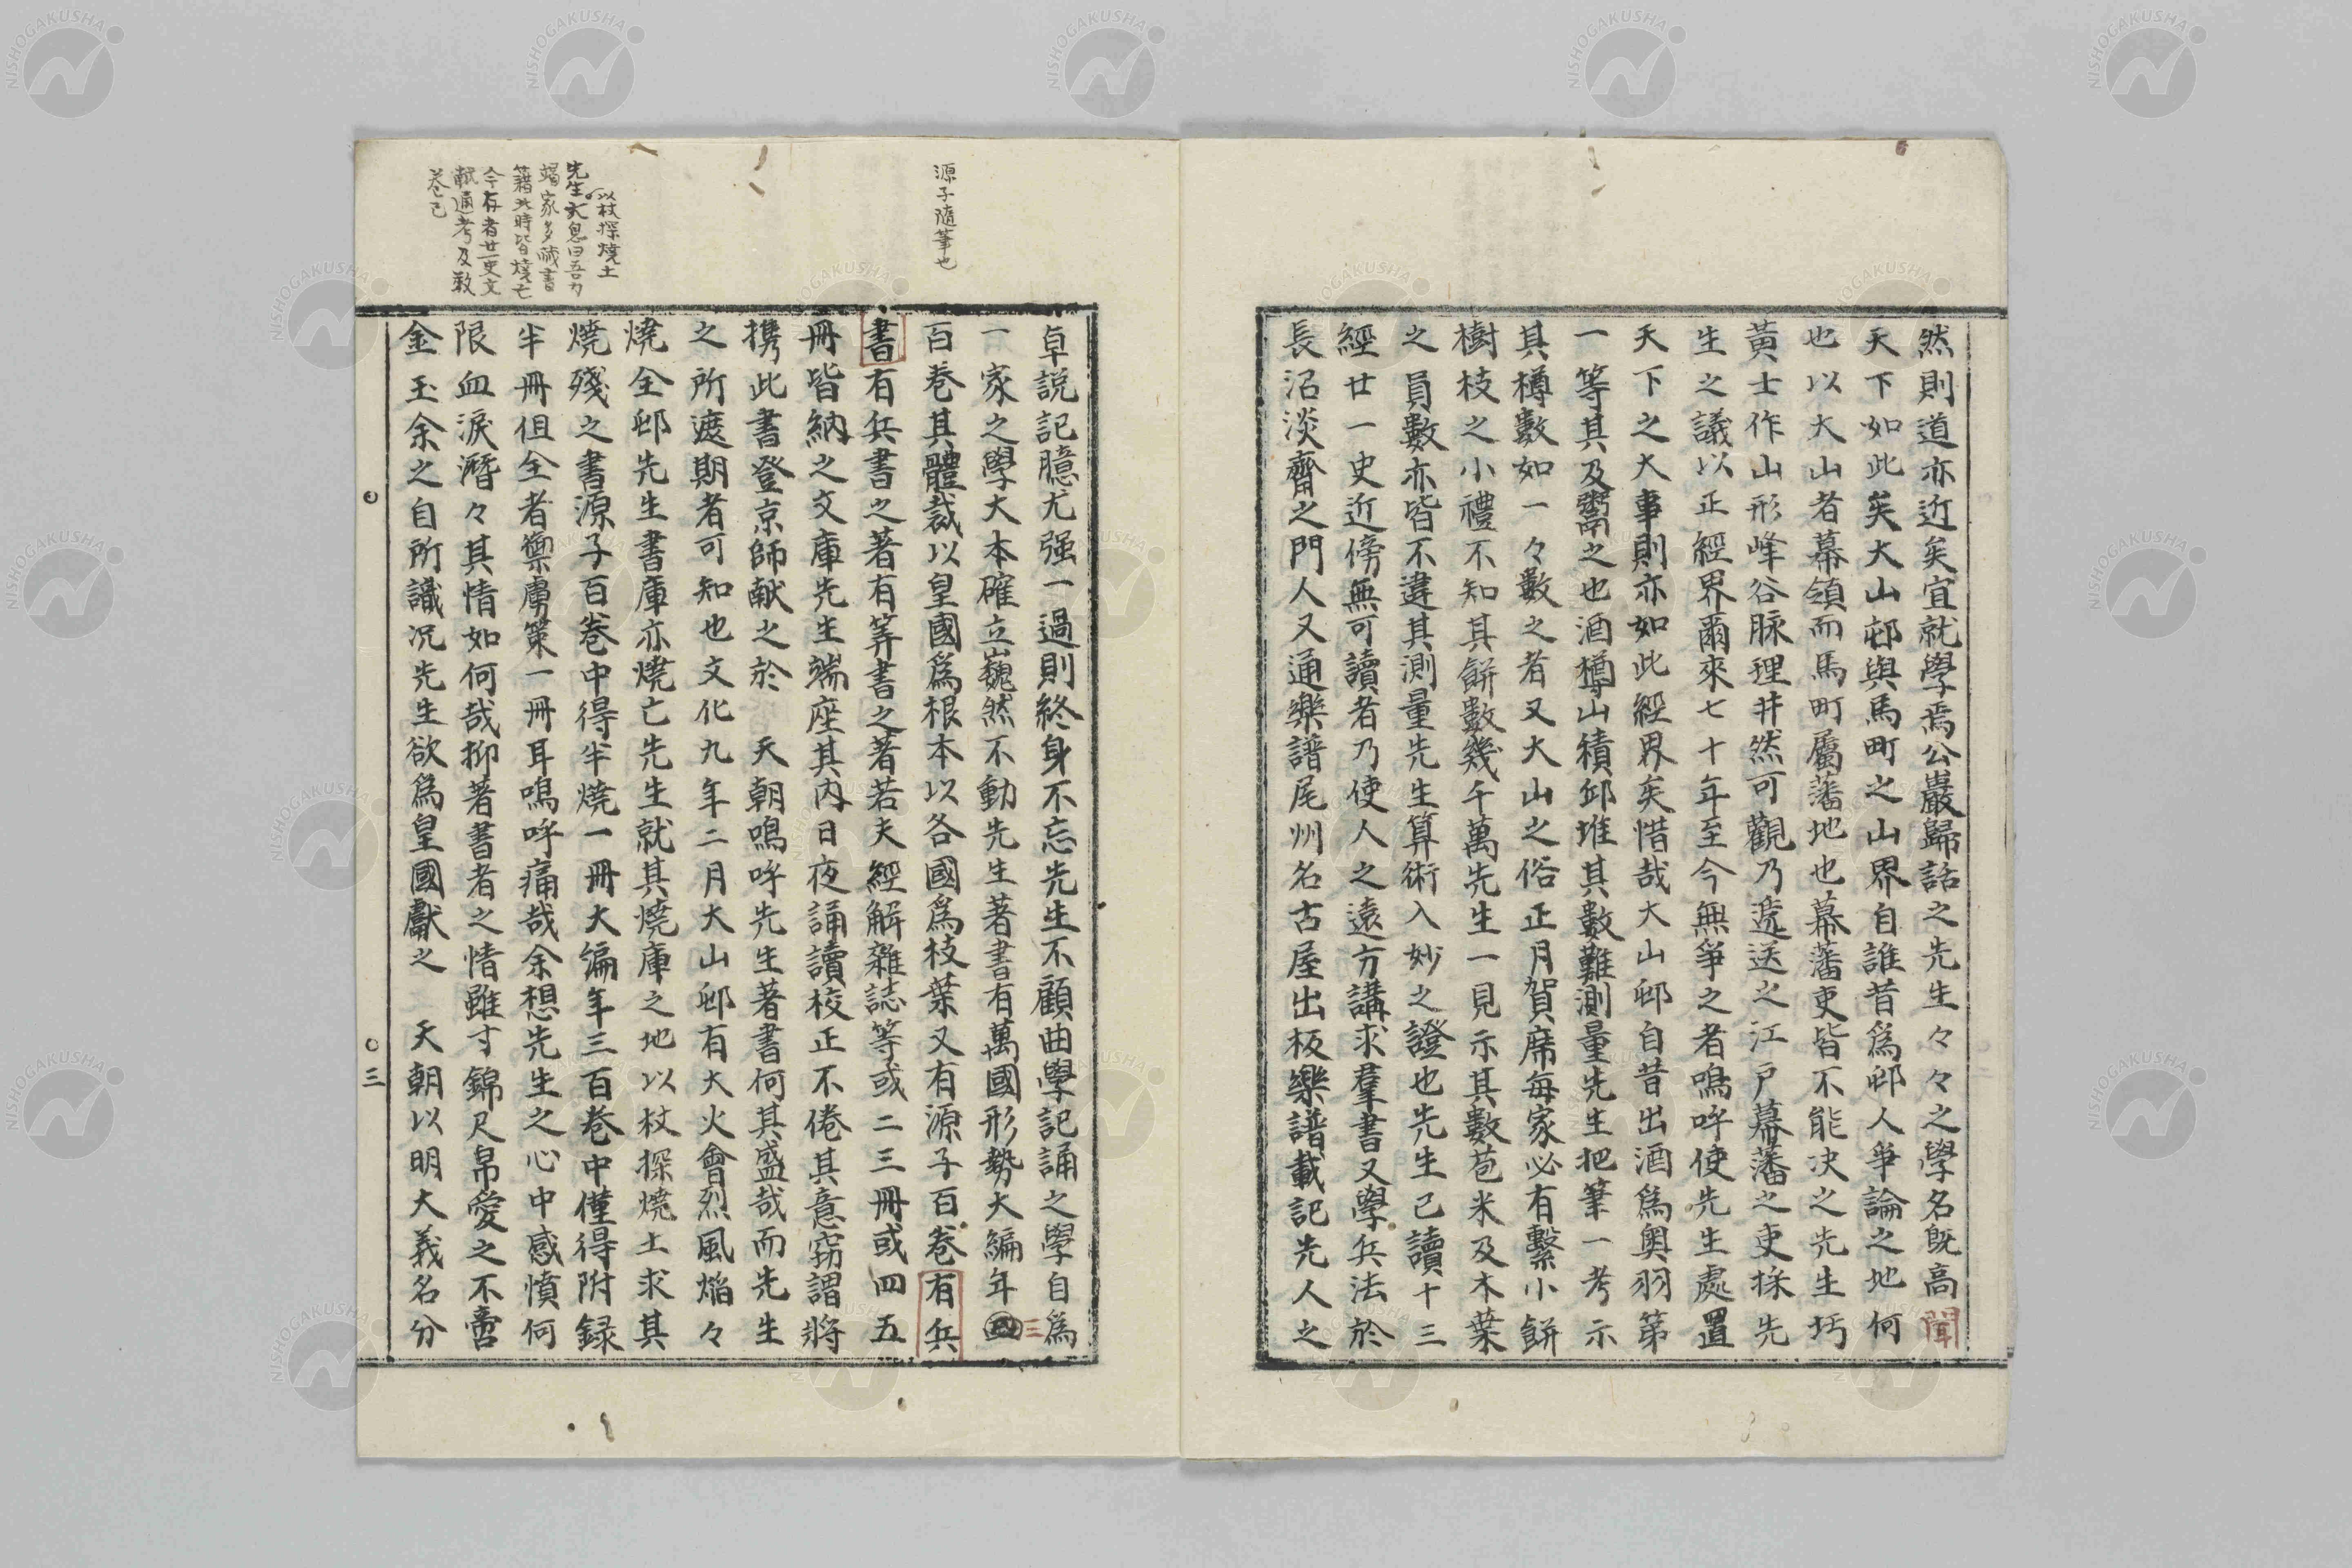 然則道亦近矣宜就學焉公巖歸話之先生々々之學名既高聞
天下如此矣大山邨與馬町之山界自誰昔爲邨人爭論之地何
也以大山者幕領而馬町屬藩地也幕藩吏皆不能决之先生圬
黃土作山形峰谷脉理井然可觀乃遞送之江戸幕藩之吏採先
生之議以正經界爾來七十年至今無爭之者嗚呼使先生處置
天下之大事則亦如此經界矣惜哉大山邨自昔出酒爲奧羽第
一等其及鬻之也酒樽山積邱堆其數難測量先生把筆一考示
其樽數如一々數之者又大山之俗正月賀席每家必有繫小餅
樹枝之小禮不知其餅數幾千萬先生一見示其數苞米及木葉
之員數亦皆不違其測量先生算術入妙之證也先生已讀十三
經廿一史近傍無可讀者乃使人之遠方講求羣書又學兵法於
長沼淡齋之門人又通樂譜尾州名古屋出板樂譜載記先人之
源子隨筆也
卓説記臆尤强一過則終身不忘先生不顧曲學記誦之學自爲
一家之學大本確立巍然不動先生著書有萬國形勢大編年四三
百卷其體裁以皇國爲根本以各國爲枝葉又有源子百卷有兵
書有兵書之著有筭書之著若夫經解雜誌等或二三冊或四五
冊皆納之文庫先生端座其内日夜誦讀校正不倦其意窃謂將
携此書登京師献之於　天朝嗚呼先生著書何其盛哉而先生
之所遮期者可知也文化九年二月大山邨有大火會烈風焔々
燒全邨先生書庫亦燒亡先生就其燒庫之地以杖探燒土求其
燒殘之書源子百卷中得半燒一冊大編年三百卷中僅得附録
半冊但全者禦虜策一冊耳嗚呼痛哉余想先生之心中感憤何
限血涙潛々其情如何哉抑著書者之情雖寸錦尺帛愛之不啻
金玉余之自所識况先生欲爲皇國獻之　天朝以明大義名分
以杖探燒土
先生大息曰吾力
竭家多藏書
籍此時皆燒亡
今存者廿一史文
献通考及數
卷已
三